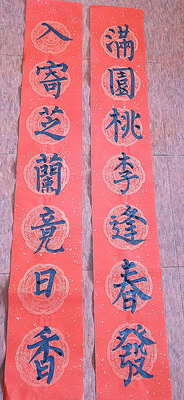 滿園桃李逢春發
入寄芝蘭竟日香